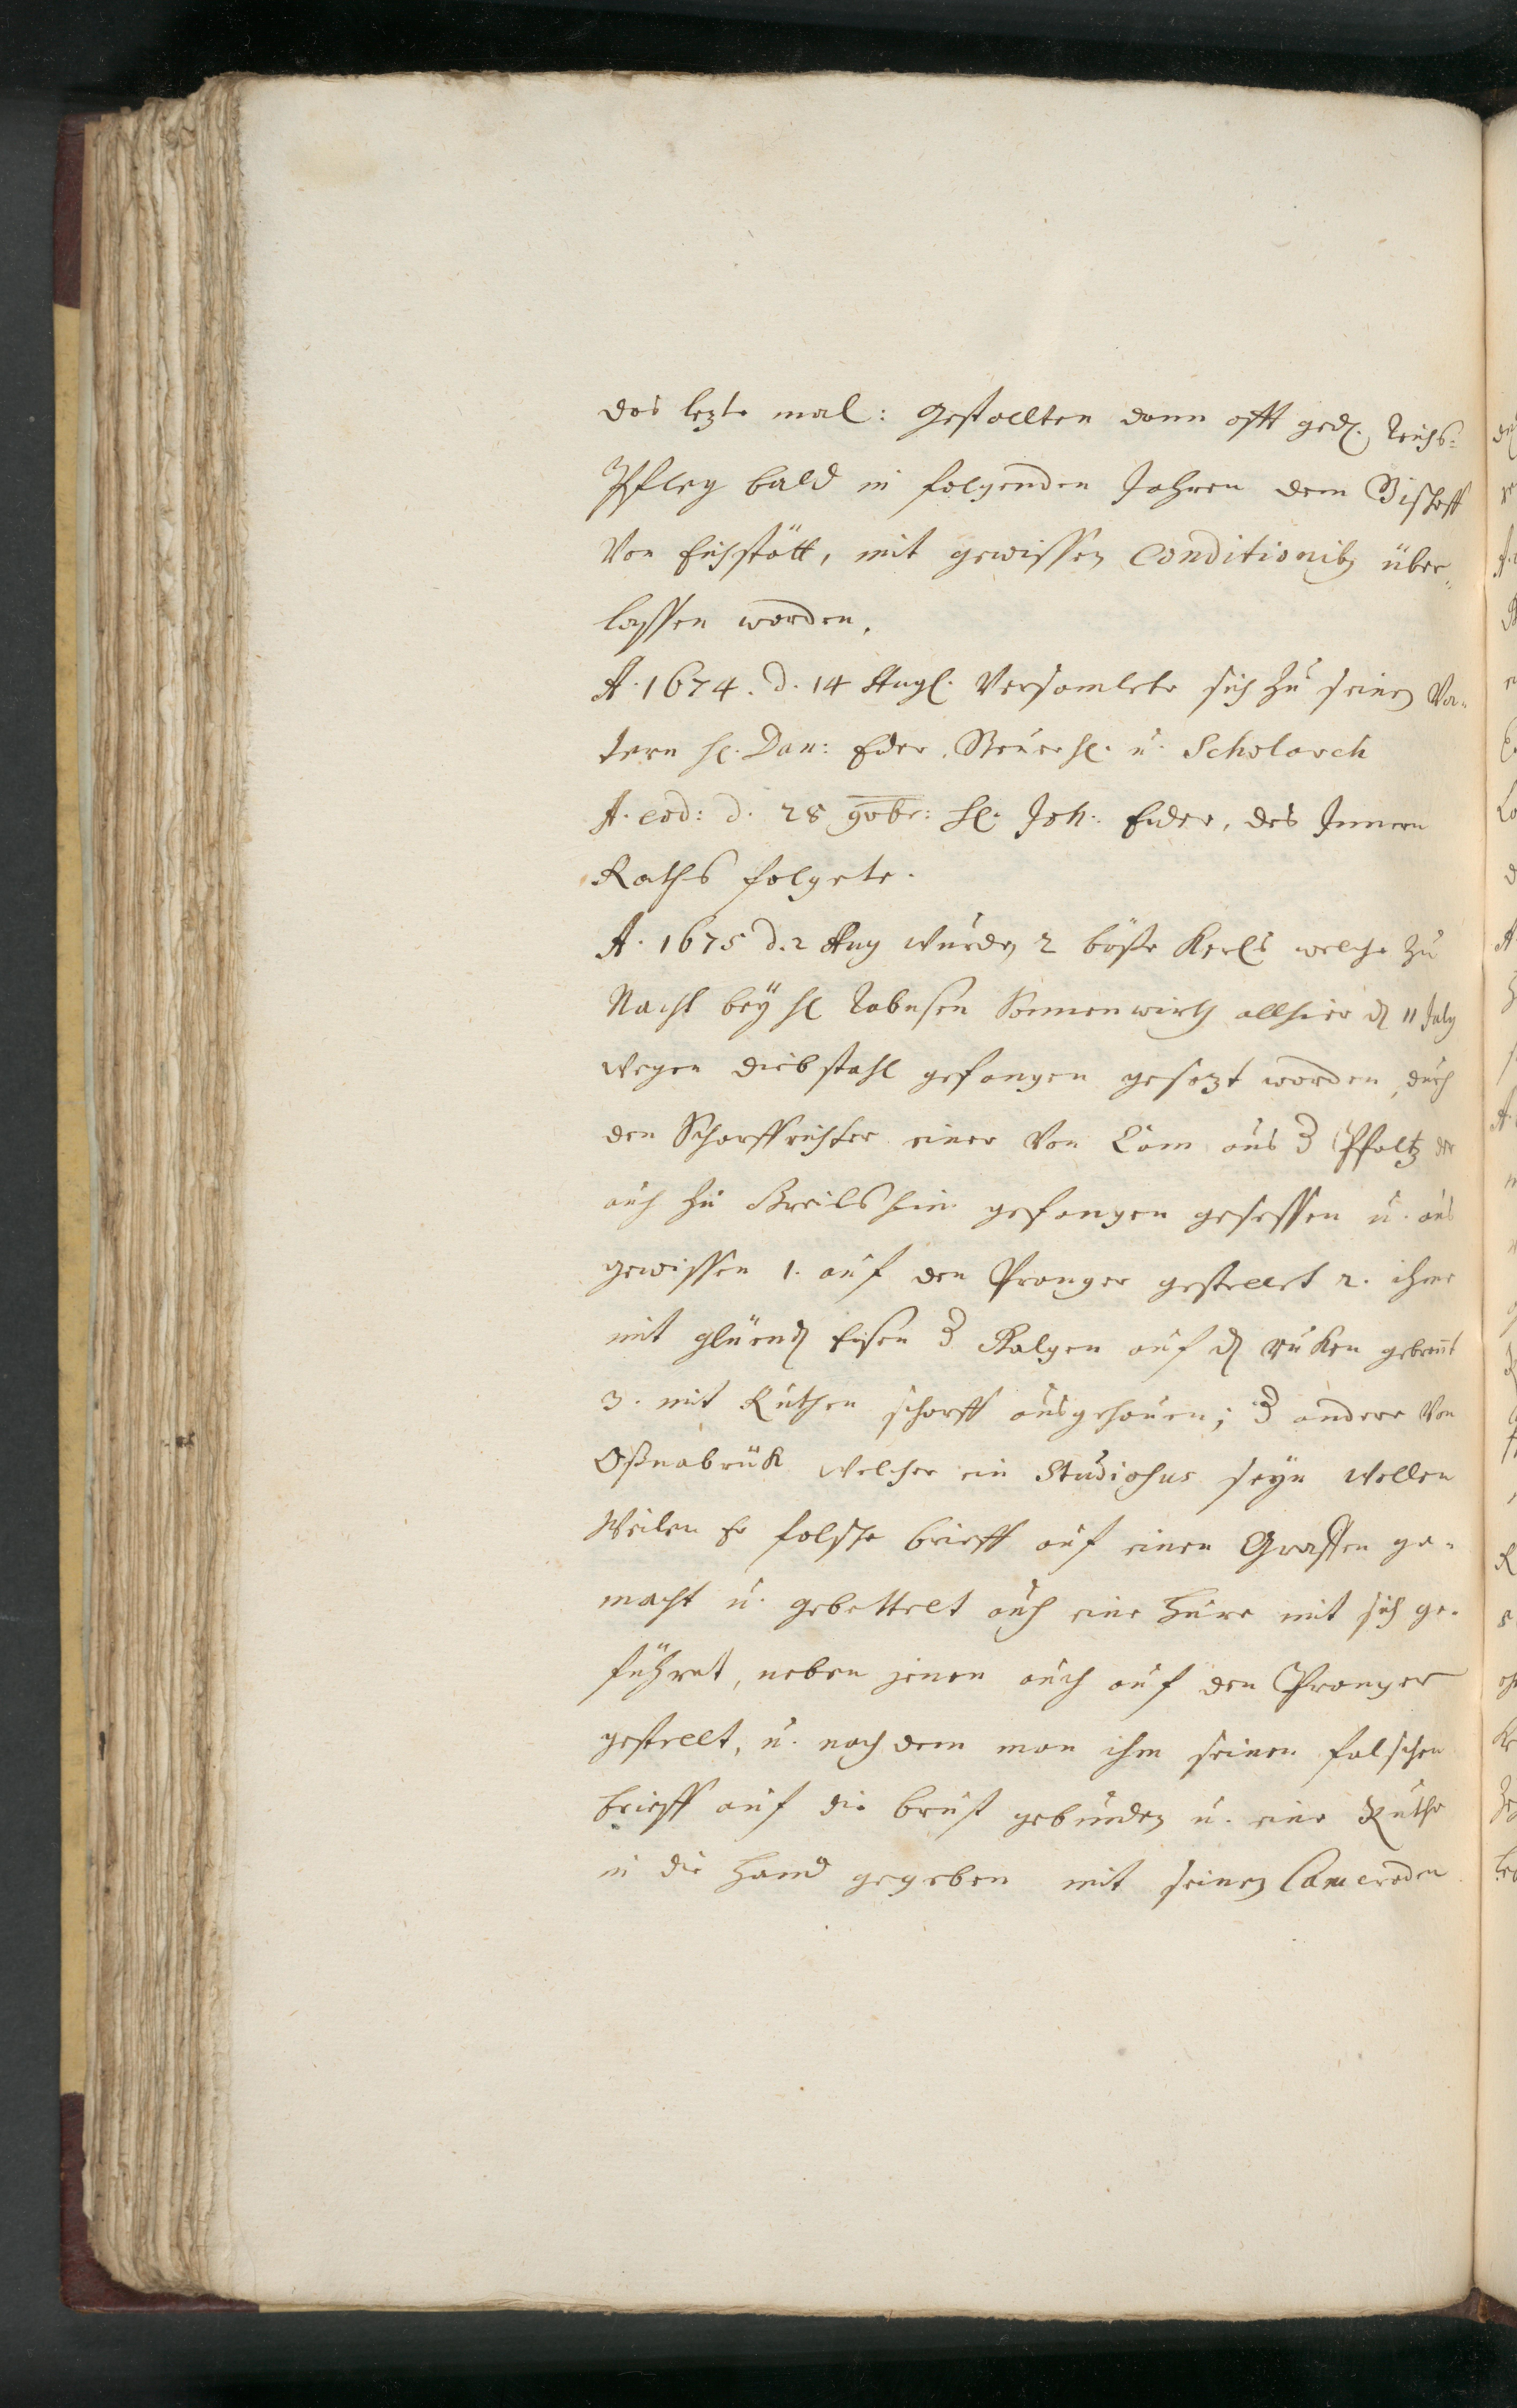 das lezte mal: Gestallten dann offt ged. Reichs=
Pfleg bald in folgenden Jahren dem Bischoff
Von Eichstätt, mit gewissen Conditionib9 über=
lassen worden.
A. 1674. d. 14 Aug. Versamlete sich zu seinen Vä=
tern H. Dan: Eder. Steuerh. u. Scholarch
A. eod: d. 28 9vbr: H. Joh. Eder, des Innern
Raths folgete.
A. 1675 d. 2 Aug wurden 2 böße Kerls welche zu
Nacht bey H Sonnenwirth allhier d 11 July
Wegen diebstahl gefangen gesezt worden, durch
den Scharffrichter einer Von aus d Pfaltz der
auch zu gefangen gesessen u. aus
gewissen 1. auf den Pranger gestellet 2. ihme
mit glüend Eisen d Galgen auf d ruken gebrent
3. mit Ruthen scharff ausgehauen; d andere Von
Oßnabrük Welcher ein Studiosus seyn Wollen
Weilen Er falsche brieff auf einen Graffen ge=
macht u. gebettelt auch eine Hure mit sich ge=
führet, neben jenen auch auf den Pranger
gestellt, u. nach dem man ihm seinen falschen
brieff auf die brust gebunden u. eine Ruthe
in die Hand gegeben mit seinen Cameraden